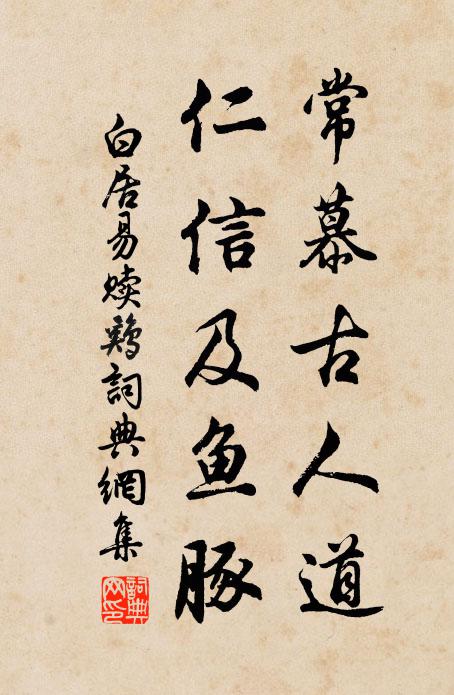 常慕古人道
仁信及鱼豚
白居易赎鸡詞典網集
詞典網印